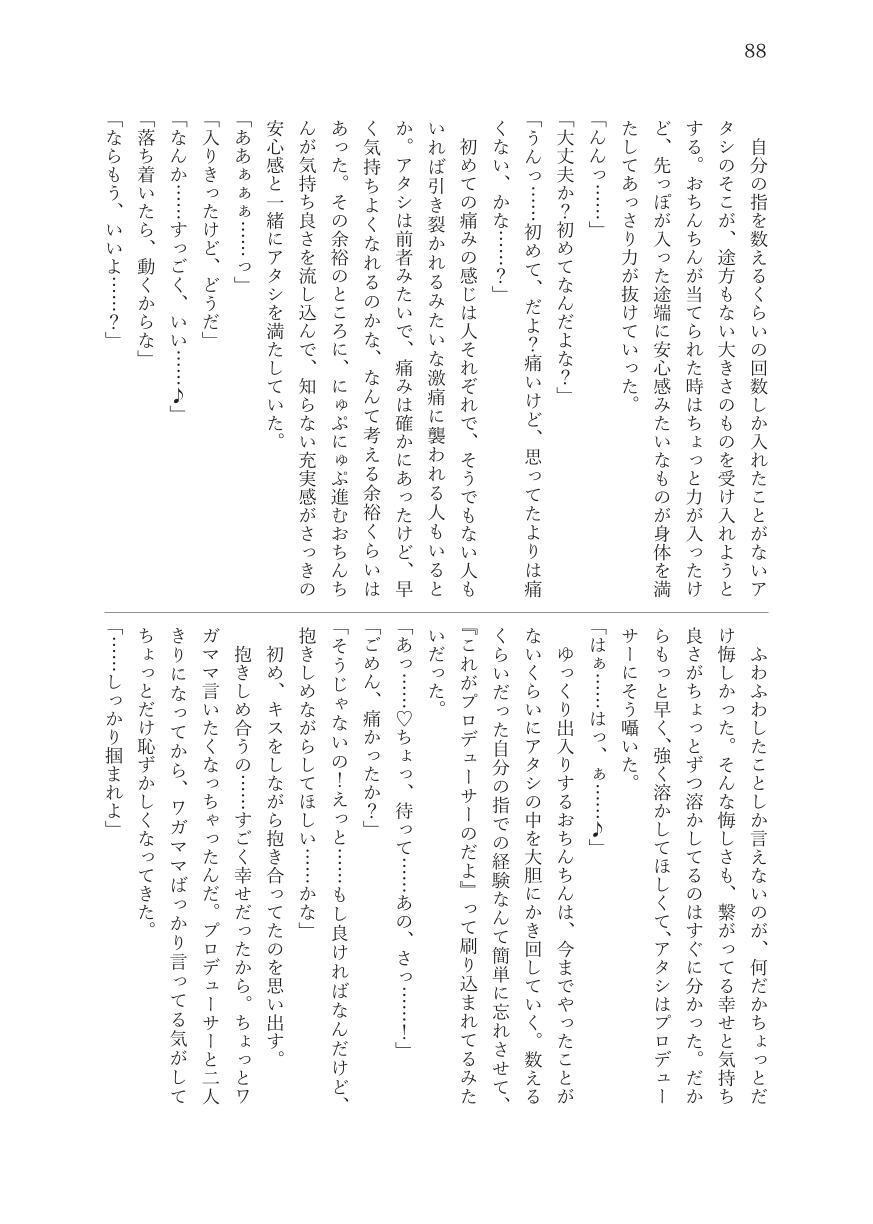 88
自分の指を数えるくらいの回数しか入れたことがないア
タシのそこが、途方もない大きさのものを受け入れようと
する。おちんちんが当てられた時はちょっと力が入ったけ
ど、先っぽが入った途端に安心感みたいなものが身体を満
たしてあっさり力が抜けていった。
「んんっ……」
「大丈夫か？初めてなんだよな？」
「うんっ……初めて、だよ？痛いけど、思ってたよりは痛
くない、かな……？」
初めての痛みの感じは人それぞれで、そうでもない人も
いれば引き裂かれるみたいな激痛に襲われる人もいると
か。アタシは前者みたいで、痛みは確かにあったけど、早
く気持ちよくなれるのかな、なんて考える余裕くらいは
あった。その余裕のところに、にゅぷにゅぷ進むおちんち
んが気持ち良さを流し込んで、知らない充実感がさっきの
安心感と一緒にアタシを満たしていた。
「ああぁぁぁ……っ」
「入りきったけど、どうだ」
「なんか……すっごく、いい……♪」
「落ち着いたら、動くからな」
「ならもう、いいよ……？」
ふわふわしたことしか言えないのが、何だかちょっとだ
け悔しかった。そんな悔しさも、繋がってる幸せと気持ち
良さがちょっとずつ溶かしてるのはすぐに分かった。だか
らもっと早く、強く溶かしてほしくて、アタシはプロデュー
サーにそう囁いた。
「はぁ……はっ、ぁ……♪」
ゆっくり出入りするおちんちんは、今までやったことが
ないくらいにアタシの中を大胆にかき回していく。数える
くらいだった自分の指での経験なんて簡単に忘れさせて、
『これがプロデューサーのだよ』って刷り込まれてるみた
いだった。
「あっ……♡ちょっ、待って……あの、さっ……！」
「ごめん、痛かったか？」
「そうじゃないの！えっと……もし良ければなんだけど、
抱きしめながらしてほしい……かな」
初め、キスをしながら抱き合ってたのを思い出す。
抱きしめ合うの……すごく幸せだったから。ちょっとワ
ガママ言いたくなっちゃったんだ。プロデューサーと二人
きりになってから、ワガママばっかり言ってる気がして
ちょっとだけ恥ずかしくなってきた。
「……しっかり掴まれよ」